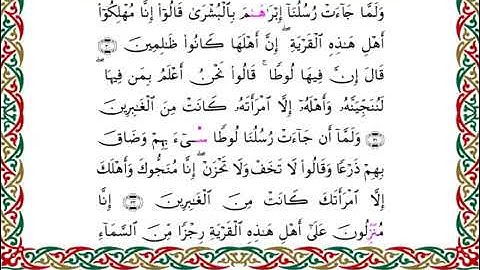 وَلَمَّا جَآءَتْ رُسُلُنَآ إِبْرَٰهَٰمَ بِٱلْبُشْرَىٰ قَالُوٓا۟ إِنَّا مُهْلِكُوٓا۟
أَهْلِ هَٰذِهِ ٱلْقَرْيَةِ ۖ إِنَّ أَهْلَهَا كَانُوا۟ ظَٰلِمِينَ
قَالَ إِنَّ فِيهَا لُوطًا ۚ قَالُوا۟ نَحْنُ أَعْلَمُ بِمَن فِيهَا ۖ
لَنُنَجِّيَنَّهُۥ وَأَهْلَهُۥٓ إِلَّا ٱمْرَأَتَهُۥ كَانَتْ مِنَ ٱلْغَٰبِرِينَ
وَلَمَّآ أَن جَآءَتْ رُسُلُنَا لُوطًا سِىٓءَ بِهِمْ وَضَاقَ
بِهِمْ ذَرْعًا وَقَالُوا۟ لَا تَخَفْ وَلَا تَحْزَنْ ۖ إِنَّا مُنَجُّوكَ وَأَهْلَكَ
إِلَّا ٱمْرَأَتَكَ كَانَتْ مِنَ ٱلْغَٰبِرِينَ إِنَّا
مُنَزِّلُونَ عَلَىٰٓ أَهْلِ هَٰذِهِ ٱلْقَرْيَةِ رِجْزًا مِّنَ ٱلسَّمَآءِ